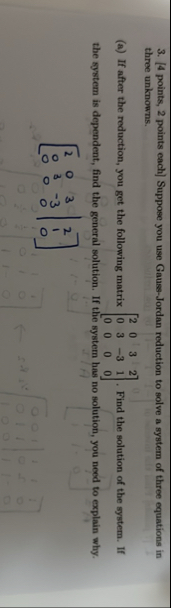 3. [4 points, 2 points each] Suppose you use Gauss-Jordan reduction to solve a system of three equations in
three unknowns.
(a) If after the reduction, you get the following matrix [2 0 3 2
0 3 −3 1
0 0 0 0]. Find the solution of the system. If
the system is dependent, find the general solution. If the system has no solution, you need to explain why.
[2 0 3 | 2
0 3 3 | 1
0 0 0 | 0]